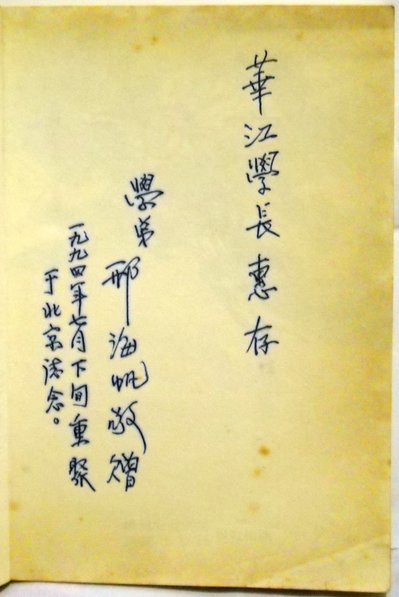 華江學長惠存
學弟 邢海帆敬贈
一九九四年七月下旬重聚
于北京誌念。